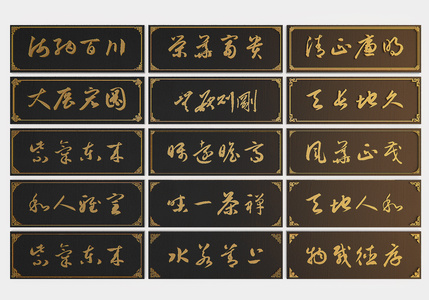 海纳百川
荣华富贵
清正廉明
大展宏图
无欲则刚
天长地久
紫气东来
高瞻远瞩
风华正茂
和人致宣
茶禅一味
天地人和
紫气东来
上善若水
厚德载物